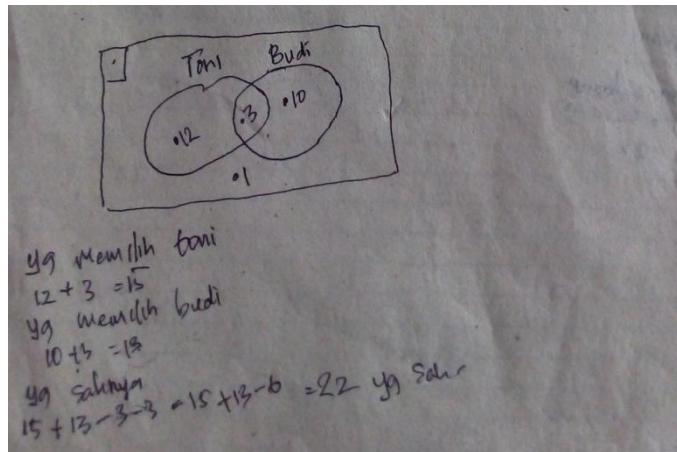 Toni Budi
.12 .3 .10
.1
yg memilih toni
12 + 3 = 15
yg memilih budi
10 + 3 = 13
yg sahnya
15 + 13 - 3 - 3 = 15 + 13 - 6 = 22 yg sah